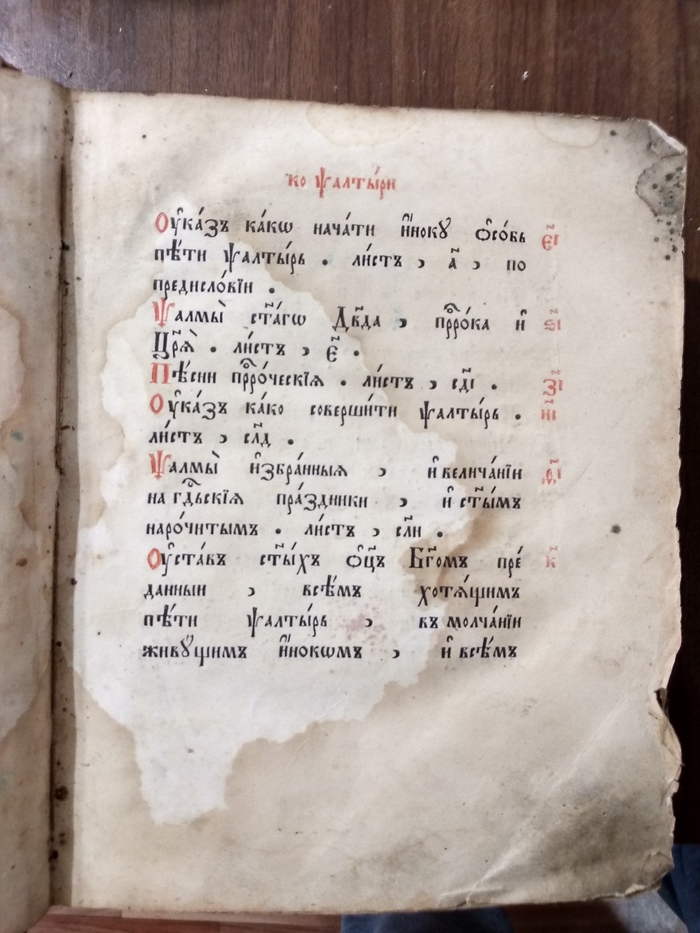 ко ѱалты́ри
Оу҆ка́зъ ка́кѡ нача́ти и҆́нокꙋ ѻ҆со́бь е҃і
пѣ́ти ѱалты́рь . ли́стъ , а҃ , по
предисло́вїи .
Ѱалмы̀ ст҃а́гѡ Дв҃да , прⷪ҇ро́ка и҆ ѕ҃і
Цр҃ѧ̀ . ли́стъ , є҃ .
Пѣ́сни прⷪ҇ро́ческїѧ . ли́стъ , сд҃і . з҃і
Оу҆ка́зъ ка́ко соверши́ти ѱалты́рь . и҃і
ли́стъ , сл҃д .
Ѱалмы̀ и҆збра́нныѧ , и҆ велича́нїи ѳ҃і
на гдⷭ҇ьскїѧ пра́здники , и҆ ст҃ы́мъ
наро́читымъ . ли́стъ , сл҃и .
Оу҆ста́въ ст҃ы́хъ ѻ҆ц҃ъ Бг҃омъ пре́ к҃
данныи , всѣ́мъ хотѧ́щимъ
пѣ́ти ѱалты́рь , въ молча́нїи
живꙋ́щимъ и҆́нокѡмъ , и҆ всѣ́мъ